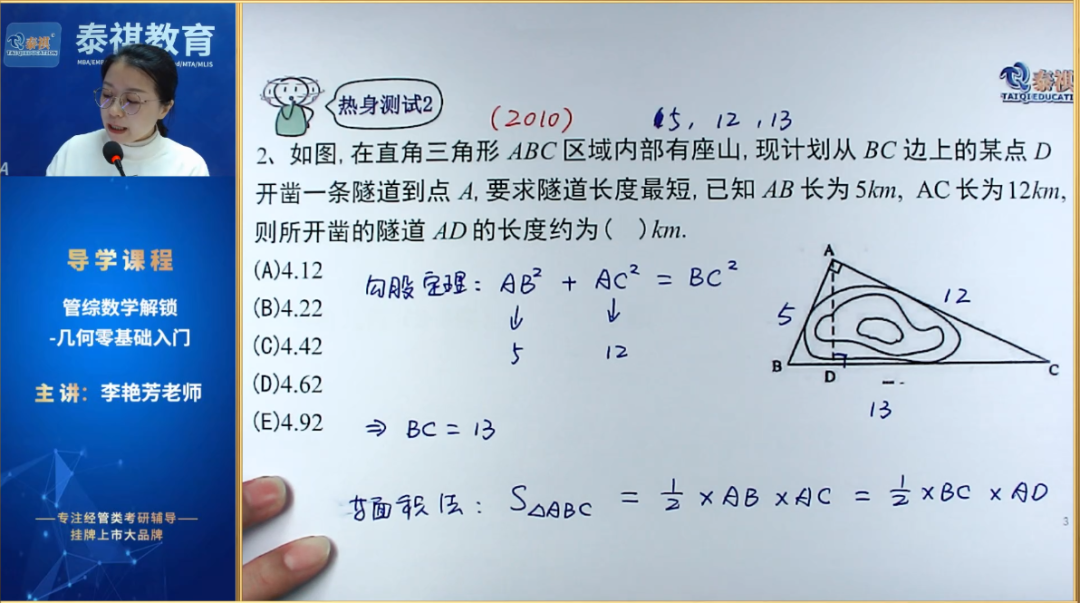 泰祺
TAIQI EDUCATION
泰祺教育
导学课程
管综数学解锁
-几何零基础入门
主讲：李艳芳老师
专注经管类考研辅导
挂牌上市大品牌
泰祺
TAIQI EDUCATI
热身测试2
(2010)
5, 12, 13
2、如图,在直角三角形 ABC 区域内部有座山,现计划从 BC 边上的某点 D
开凿一条隧道到点 A,要求隧道长度最短,已知 AB 长为 5km, AC 长为12km,
则所开凿的隧道 AD 的长度约为( )km.
(A)4.12
(B)4.22
(C)4.42
(D)4.62
(E)4.92
勾股定理: AB² + AC² = BC²
↓ ↓
5 12
⇒ BC = 13
等面积法: S△ABC = 1/2 × AB × AC = 1/2 × BC × AD
A
5
12
B
D
C
13
3